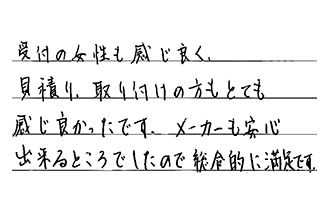 受付の女性も感じ良く、
見積り、取り付けの方もとても
感じ良かったです。メーカーも安心
出来るところでしたので総合的に満足です。